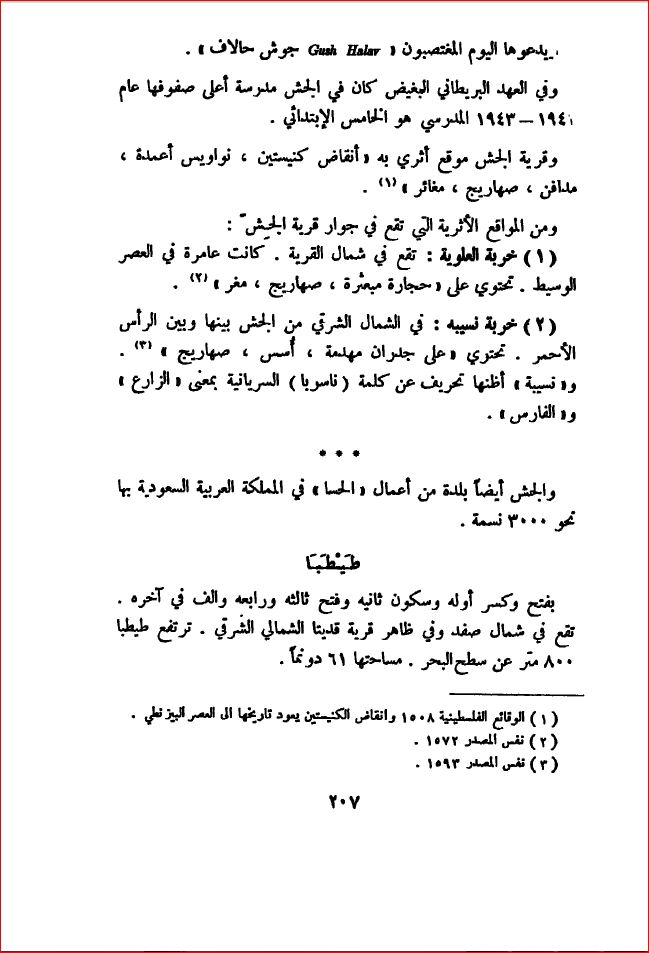 يدعوها اليوم المغتصبون « Gush Halav جوش حالاف » .
وفي العهد البريطاني البغيض كان في الجش مدرسة أعلى صفوفها عام
١٩٤٠ – ١٩٤٣ المدرسي هو الخامس الإبتدائي .
وقرية الجش موقع أثري به « أنقاض كنيستين ، نواويس أعمدة ،
مدافن ، صهاريج ، مغائر » (١) .
ومن المواقع الأثرية التي تقع في جوار قرية الجش :
(١) خربة العلوية : تقع في شمال القرية . كانت عامرة في العصر
الوسيط . تحتوي على « حجارة مبعثرة ، صهاريج ، مغر » (٢) .
(٢) خربة نسيبه : في الشمال الشرقي من الجش بينها وبين الرأس
الأحمر . تحتوي « على جدران مهدمة ، أُسس ، صهاريج » (٣) .
و« نسيبة » أظنها تحريف عن كلمة ( ناسوبا ) السريانية بمعنى « الزارع »
و« الفارس » .
* * *
والجش أيضاً بلدة من أعمال « الحسا » في المملكة العربية السعودية بها
نحو ٣٠٠٠ نسمة .
طَيْطَبَا
بفتح وكسر أوله وسكون ثانيه وفتح ثالثه ورابعه والف في آخره .
تقع في شمال صفد وفي ظاهر قرية قديتا الشمالي الشرقي . ترتفع طيطبا
٨٠٠ متر عن سطح البحر . مساحتها ٦١ دونماً .
(١) الوقائع الفلسطينية ١٥٠٨ وانقاض الكنيستين يعود تاريخها الى العصر البيزنطي .
(٢) نفس المصدر ١٥٧٢ .
(٣) نفس المصدر ١٥٩٣ .
٢٠٧